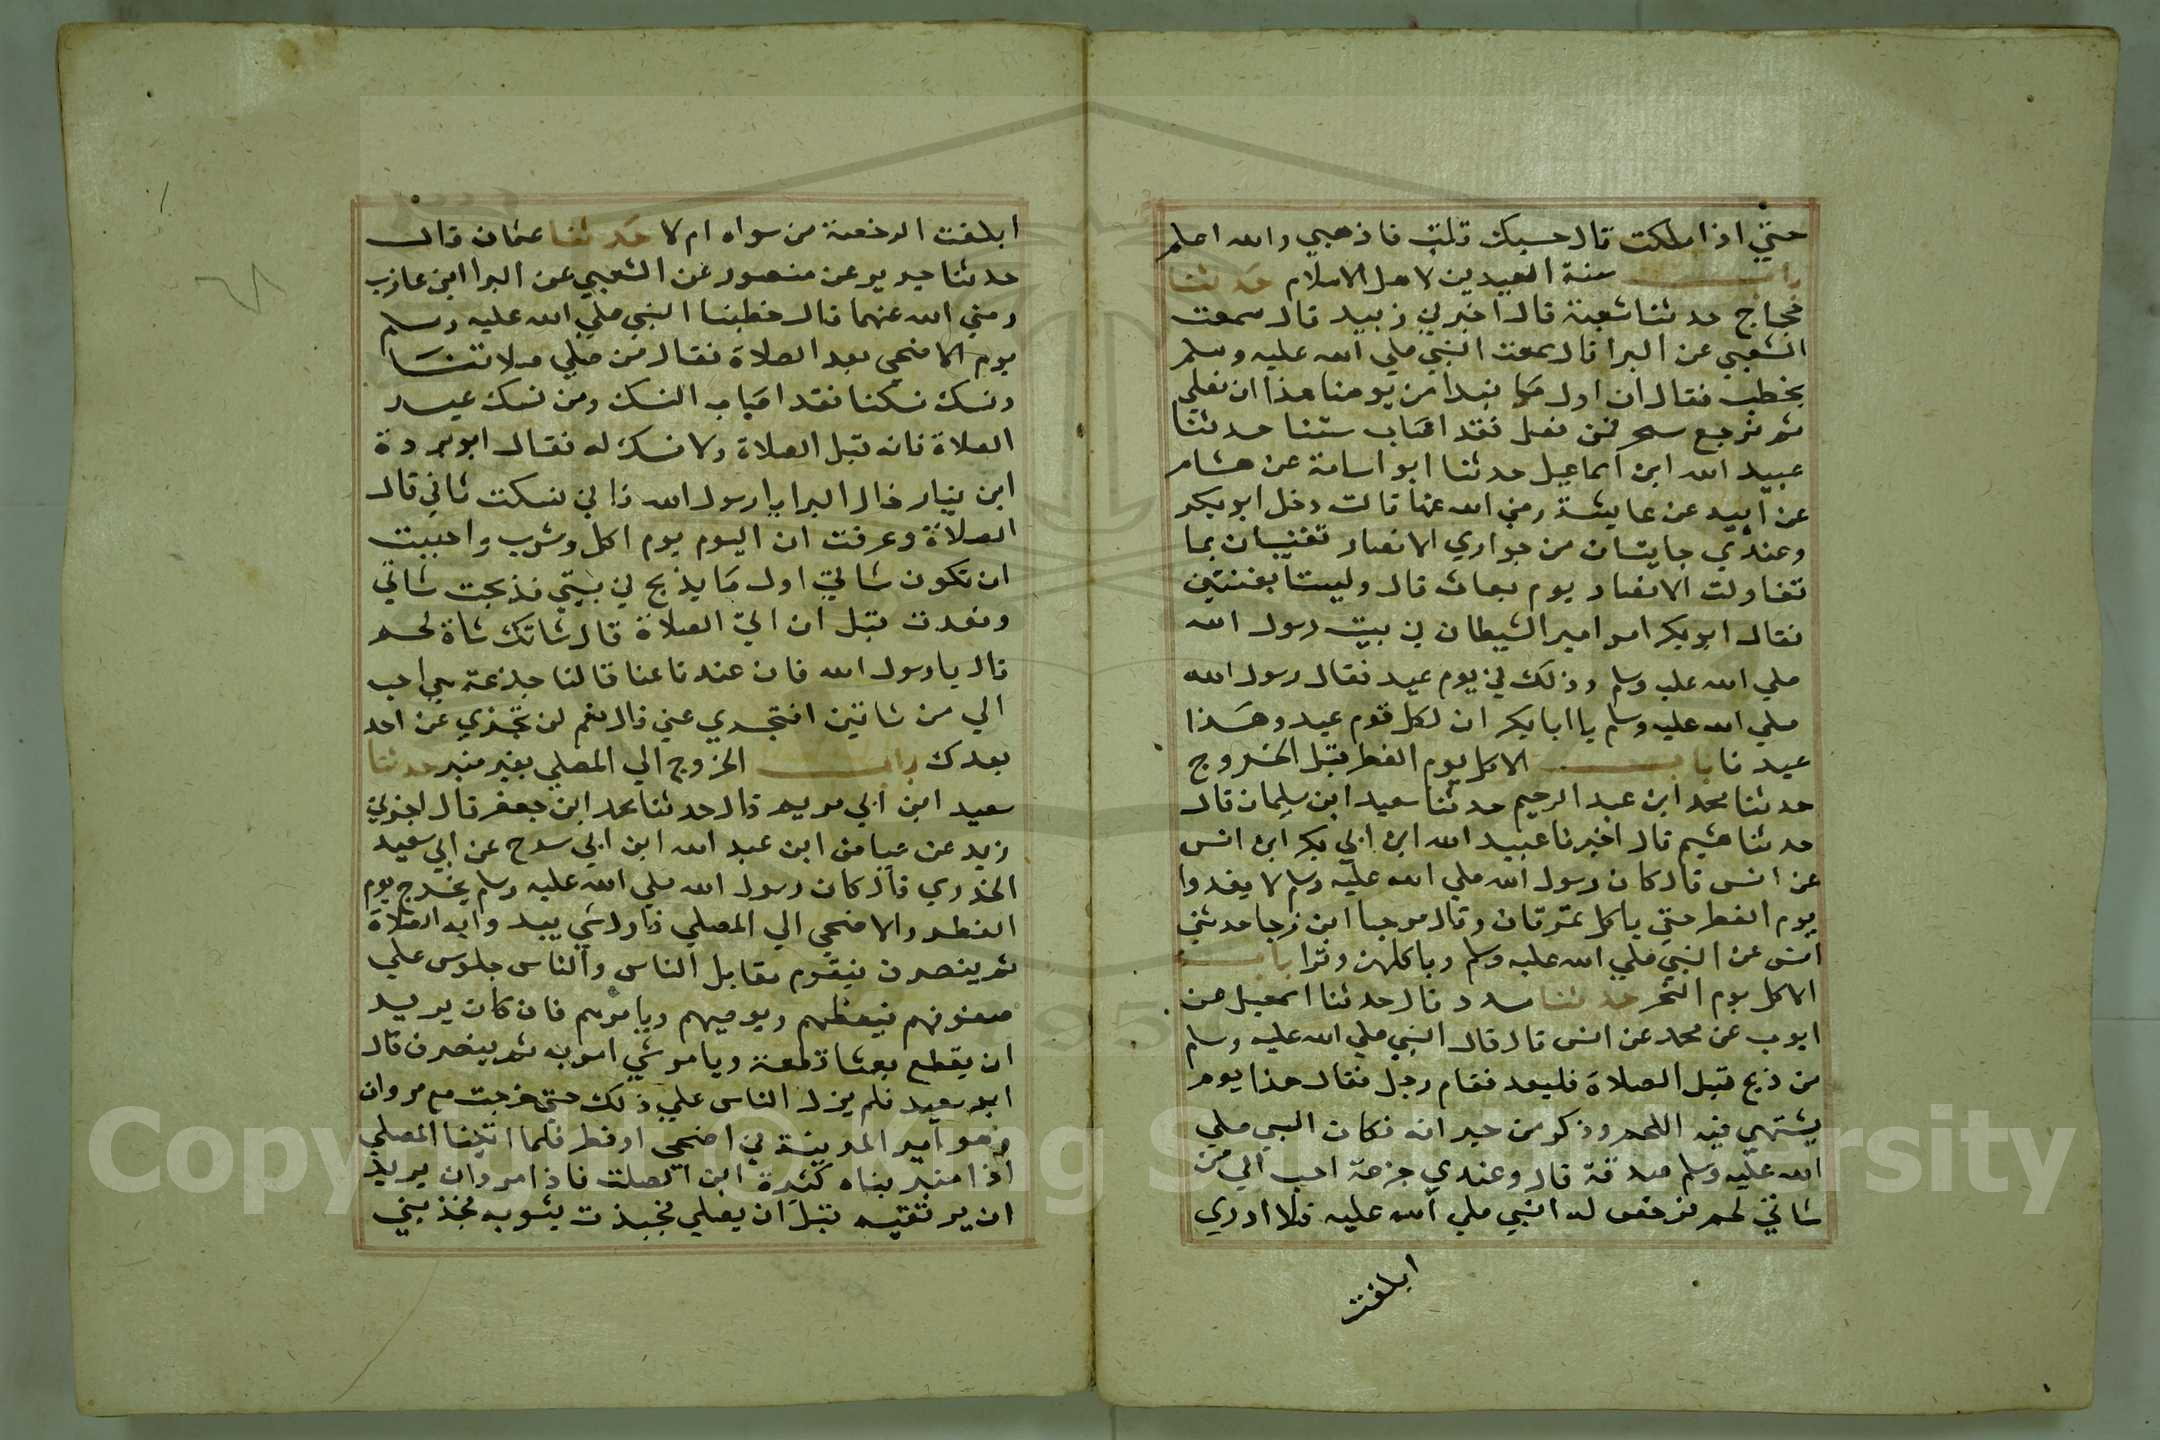 حتي اذا مللكت قال حسبك قلت فاذهبي والله اعلم
باب سنة العيدين لاهل الاسلام حدثنا
حجاج حدثنا شعبة قال اخبرني زبيد قال سمعت
الشعبي عن البرا قال سمعت النبي صلي الله عليه وسلم
يخطب فقال ان اول ما نبدا من يومنا هذا ان نصلي
ثم نرجع فمن فعل فقد اصاب سنتنا حدثنا
عبيد الله ابن اسماعيل حدثنا ابو اسامة عن هشام
عن ابيه عن عايشة رضي الله عنها قالت دخل ابو بكر
وعندي جايتان من جواري الانصار تغنيان بما
تقاولت الانصار يوم بعاث قال وليستا بغنتين
فقال ابو بكر امزامير الشيطان في بيت رسول الله
صلي الله عليه وسلم وذلك في يوم عيد فقال رسول الله
صلي الله عليه وسلم يا ابا بكر ان لكل قوم عيد وهذا
عيدنا باب الاكل يوم الفطر قبل الخروج
حدثنا محمد ابن عبد الرحيم حدثنا سعيد ابن سليمان قال
حدثنا هشيم قال اخبرنا عبيد الله ابن ابي بكر ابن انس
عن انس قال كان رسول الله صلي الله عليه وسلم لا يغدوا
يوم الفطر حتي ياكل تمرتان وقال مرجا ابن رجا حدثني
انس عن النبي صلي الله عليه وسلم وياكلهن وترا باب
الاكل يوم النحر حدثنا مسدد قال حدثنا اسمعيل عن
ايوب عن محمد عن انس قال قال النبي صلي الله عليه وسلم
من ذبح قبل الصلاة فليعد فقام رجل فقال هذا يوم
يشتهي فيه اللحم وذكر من جيرانه فكان النبي صلي
الله عليه وسلم صدقة قال وعندي جزعة احب الي من
شاتي لحم فرخص له النبي صلي الله عليه فلا ادري
ابلغت
ابلغت الرخصة من سواه ام لا حدثنا عثمان قال
حدثنا جرير عن منصور عن الشعبي عن البرا ابن عازب
رضي الله عنهما قال خطبنا النبي صلي الله عليه وسلم
يوم الاضحي بعد الصلاة فقال من صلي صلاتنا
ونسك نسكنا فقد اصاب النسك ومن نسك
الصلاة فانه قبل الصلاة ولا نسك له فقال ابو بردة
ابن نيار خال البرا يا رسول الله فاني نسكت شاتي قال
الصلاة وعرفت ان اليوم يوم اكل وشرب واحببت
ان تكون شاتي اول ما يذبح في بيتي فذبحت شاتي
وتغديت قبل ان اتي الصلاة قال شاتك شاة لحم
قال يا رسول الله فان عندنا عناقا لنا جذعة هي احب
الي من شاتين افتجدي عني قال نعم لن تجزي عن احد
بعدك باب الخروج الي المصلي بغير منبر حدثنا
سعيد ابن ابي مريم قال حدثنا محمد ابن جعفر قال اخبرني
زيد عن عياض ابن عبد الله ابن ابي سرح عن ابي سعيد
الخدري قال كان رسول الله صلي الله عليه وسلم يخرج يوم
الفطر والاضحي الي المصلي فاول شي يبدوا به الصلاة
ثم ينصرف فيقوم مقابل الناس والناس جلوس علي
صفوفهم فيعظهم ويوصيهم ويامرهم فان كان يريد
ان يقطع بعثا قطعه ويامر شي امر به ثم ينصرف قال
ابو سعيد فلم يزل الناس علي ذلك حتي خرجت مع مروان
وهو امير المدينة في اضحي او فطر فلما اتينا المصلي
اذا منبر بناه كثيرة ابن الصلت فاذا مروان يريد
ان يرتقيه قبل ان يصلي فجبذت بثوبه فجذبني
٦٨
Copyright © King Saud University